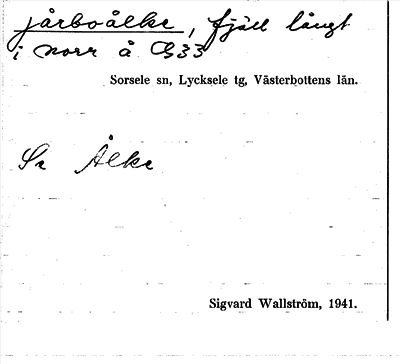 jårboålke, fjäll långt
i norr å G33
Sorsele sn, Lycksele tg, Västerbottens län.
Se Ålke
Sigvard Wallström, 1941.